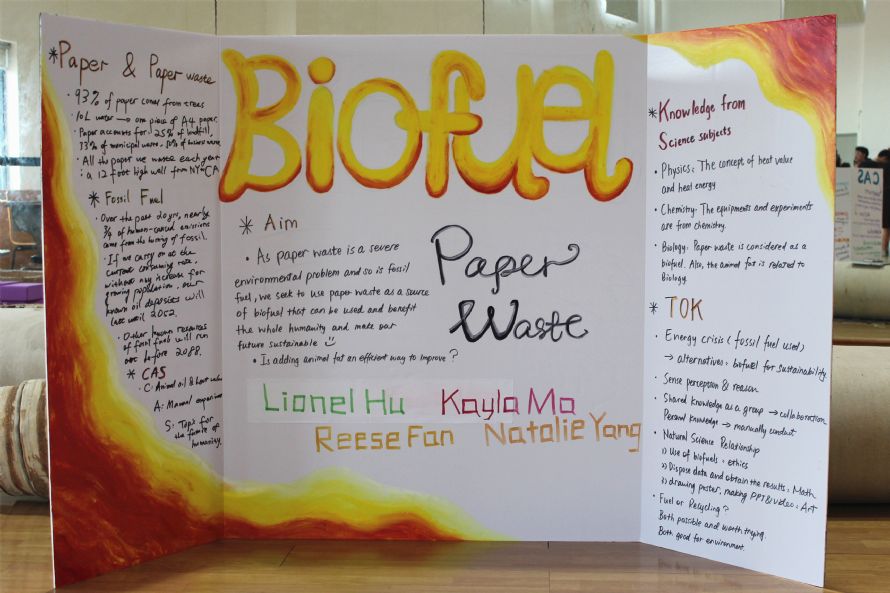 *Paper & Paper waste
· 93% of paper comes from trees
· 10L water → one piece of A4 paper.
· Paper accounts for 25% of landfill,
33% of municipal waste,
· All the paper we waste each year
: a 12 foot high wall from NY→CA
* Fossil Fuel
· Over the past 20 yrs, nearly
3/4 of human-caused emissions
came from the burning of fossil.
· If we carry on at the
current consuming rate,
without any increase for
growing population, our
known oil deposits will
last until 2052.
· Other known resources
of fossil fuels will run
out before 2088.
* CAS
· C: Animal oil & heat value
A: Manual experiment
S: Topic for
the future of
humanity.
Biofuel
Paper
Waste
* Aim
· As paper waste is a severe
environmental problem and so is fossil
fuel, we seek to use paper waste as a source
of biofuel that can be used and benefit
the whole humanity and make our
future sustainable
· Is adding animal fat an efficient way to improve?
Lionel Hu Kayla Ma
Reese Fan Natalie Yang
*Knowledge from
Science subjects
· Physics: The concept of heat value
and heat energy
· Chemistry: The equipments and experiments
are from chemistry.
· Biology: Paper waste is considered as a
biofuel. Also, the animal fat is related to
Biology.
* TOK
· Energy crisis (fossil fuel used)
→ alternatives: biofuel for sustainability
· Sense perception & reason
· Shared knowledge as a group → collaboration
Personal knowledge → manually conduct
· Natural Science Relationship
1) Use of biofuels: ethics
2) Dispose data and obtain the results: Math
3) drawing poster, making PPT & video: Art
· Fuel or Recycling?
Both possible and worth trying.
Both good for environment.
CAS